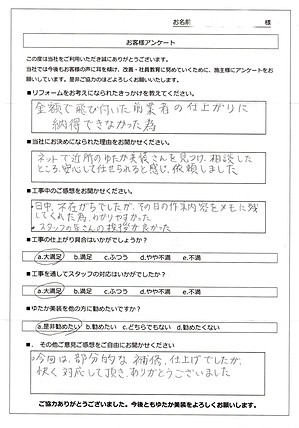 お名前 様
お客様アンケート
この度は当社をご利用いただき誠にありがとうございます。
当社では今後もお客様の声に耳を傾け、改善・社員教育に努めていくために、施主様にアンケートをお
願いしています。是非ご協力のほどよろしくお願いいたします。
■リフォームをお考えになられたきっかけを教えてください。
金額で飛び付いた前業者の仕上がりに
納得できなかった為
■当社にお決めになられた理由をお聞かせください。
ネットで近所のゆたか美装さんを見つけ、相談した
ところ、安心して任せられると感じ、依頼しました
■工事中のご感想をお聞かせください。
・日中、不在がちでしたが、その日の作業内容をメモに残
してくれた為、わかりやすかった
・スタッフの皆さんの挨拶が良かった
■工事の仕上がり具合はいかがでしょうか？
a.大満足 b.満足 c.ふつう d.やや不満 e.不満
■工事を通してスタッフの対応はいかがでしたか？
a.大満足 b.満足 c.ふつう d.やや不満 e.不満
■ゆたか美装を他の方に勧めたいですか？
a.是非勧めたい b.勧めたい c.どちらでもない d.勧めたくない
■．その他ご意見ご感想をご自由にお聞かせください
・今回は、部分的な補修、仕上げでしたが、
快く対応して頂き、ありがとうございました
ご協力ありがとうございました。今後ともゆたか美装をよろしくお願いします。